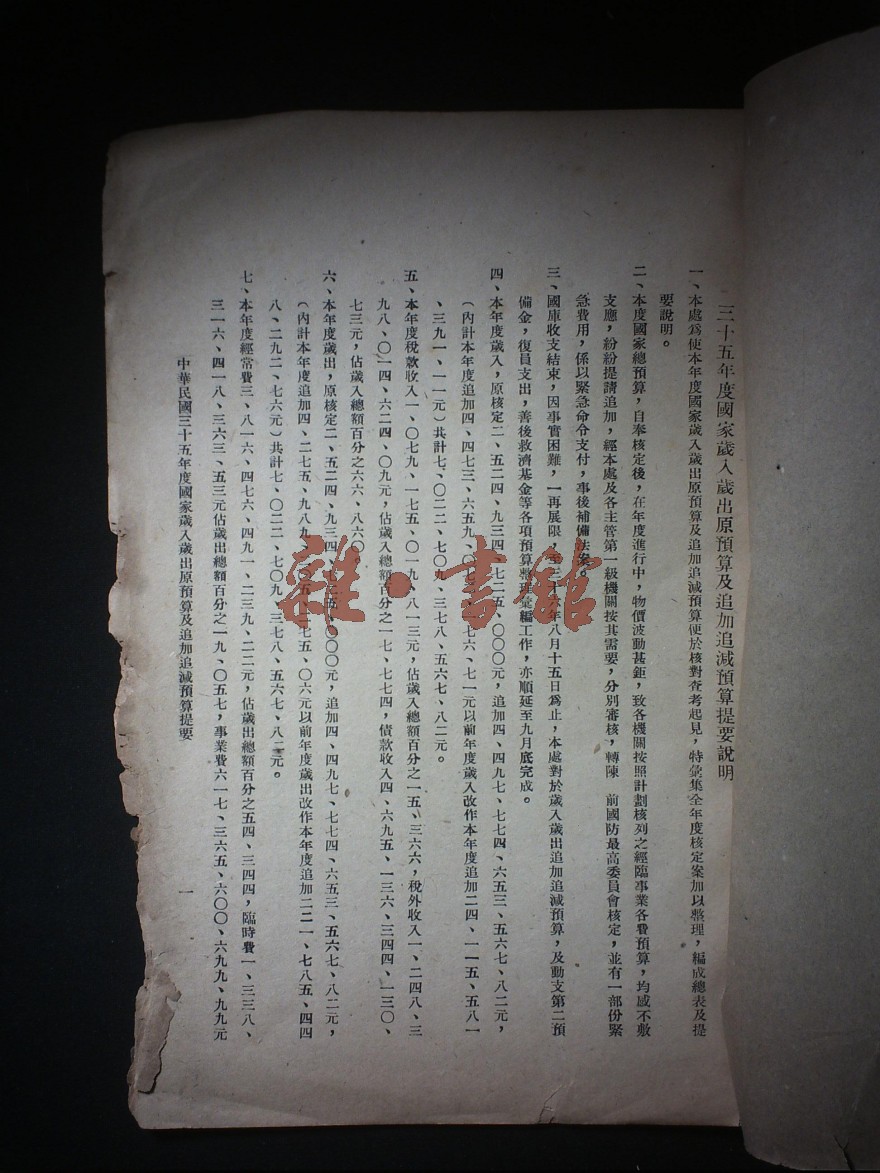 三十五年度國家歲入歲出原預算及追加追減預算提要說明
一、本處爲使本年度國家歲入歲出原預算及追加追減預算便於核對查考起見，特彙集全年度核定案加以整理，編成總表及提
要說明。
二、本度國家總預算，自奉核定後，在年度進行中，物價波動甚鉅，致各機關按照計劃核列之經臨事業各費預算，均感不敷
支應，紛紛提請追加，經本處及各主管第一級機關按其需要，分別審核，轉陳　前國防最高委員會核定，並有一部份緊
急費用，係以緊急命令支付，事後補備法案。
三、國庫收支結束，因事實困難，一再展限，至三十六年八月十五日爲止，本處對於歲入歲出追加追減預算，及動支第二預
備金，復員支出，善後救濟基金等各項預算整理彙編工作，亦順延至九月底完成。
四、本年度歲入，原核定二、五二四、九三四、七二五、〇〇〇元，追加四、四九七、七七四、六五三、五六七、八二元，
（內計本年度追加四、四七三、六五九、〇七二、一七六、七一元以前年度歲入改作本年度追加二四、一一五、五八一
、三九一、一一元）共計七、〇二二、七〇九、三七八、五六七、八二元。
五、本年度稅款收入一、〇七九、一七五、〇一九、八一三元，佔歲入總額百分之一五、三六六，稅外收入一、二四八、三
九八、〇一四、六二四、〇九元，佔歲入總額百分之一七、七七四，債款收入四、六九五、一三六、三四四、一三〇、
七三元，佔歲入總額百分之六六、八六〇。
六、本年度歲出，原核定二、五二四、九三四、七二五、〇〇〇元，追加四、四九七、七七四、六五三、五六七、八二元，
（內計本年度追加四、二七五、九八九、〇五、二七五、〇六元以前年度歲出改作本年度追加二二一、七八五、四四
八、二九二、七六元）共計七、〇二二、七〇九、三七八、五六七、八二元。
七、本年度經常費三、八一六、四七六、四九一、二三九、二二元，佔歲出總額百分之五四、三四四，臨時費一、三三八、
三一六、四一八、三六三、五三元佔歲出總額百分之一九、〇五七，事業費六一七、三六五、六〇〇、六九九、九九元
中華民國三十五年度國家歲入歲出原預算及追加追減預算提要
一
雜·書館